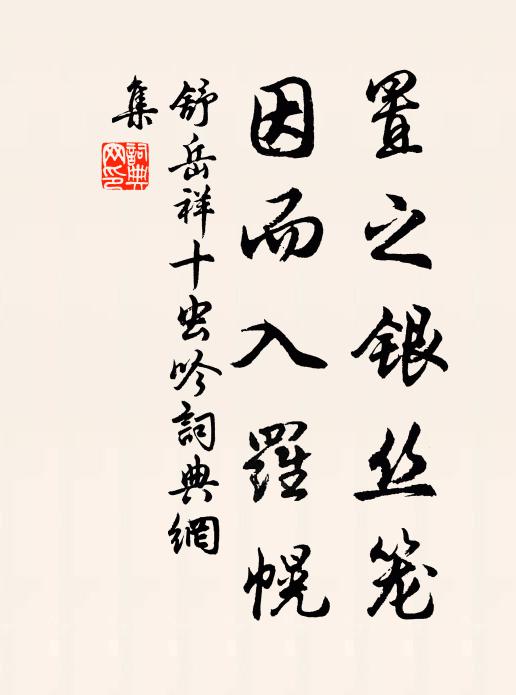 置之银丝笼
因而入羅幌
舒岳祥十虫吟詞典網
集
詞典
网印